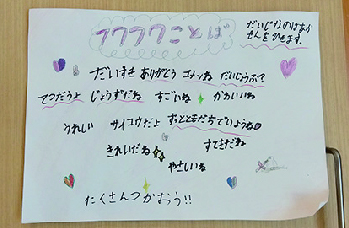 フワフワことば
だいじなのはあり
せんをひきます。
だいすき ありがとう ゴメンね だいじょうぶ?
てつだうよ じょうずだね すごいね かわいいね
うれしい サイコウだよ ずっとともだちでいようね
きれいだね すてきだね
やさしいね
たくさんつかおう!!